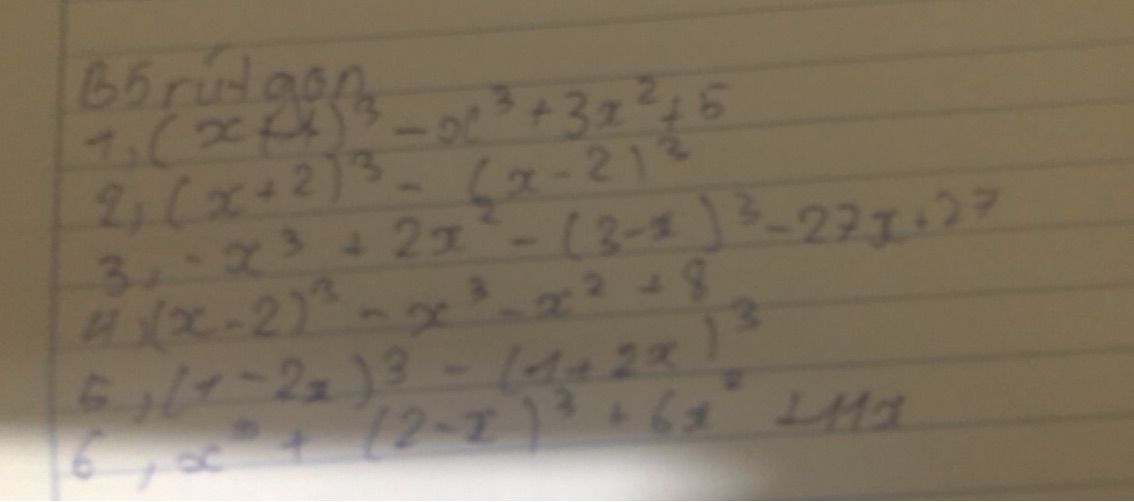 B5 rút gọn
1, (x+1)³ - x³ + 3x² + 5
2, (x+2)³ - (x-2)³
3, -x³ + 2x² - (3-x)³ - 27x + 27
4, (x-2)³ - x³ - x² + 8
5, (1-2x)³ - (1+2x)³
6, x³ + (2-x)³ + 6x² + 11x